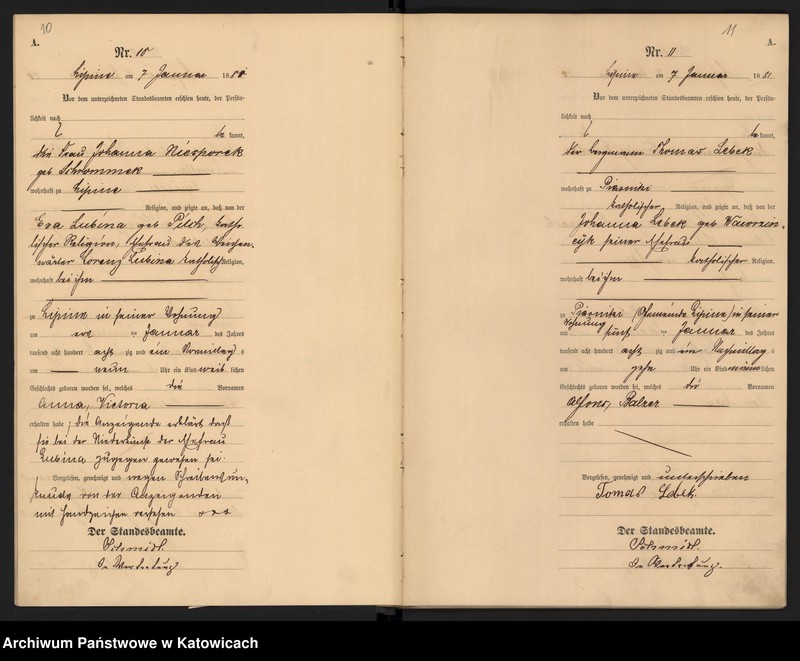 10
A.
Nr. 10
Lipine am 7 Januar 188
Vor dem unterzeichneten Standesbeamten erschien heute, der Persön-
lichkeit nach
be kannt,
die Frau Johanna Niesporek
geb Schrommek
wohnhaft zu Lipine
Religion, und zeigte an, daß von der
Eva Lubina geb Pilch, katho-
lischer Religion, Ehefrau des
wärter Lorenz Lubina katholisch Religion,
wohnhaft bei ihm
zu Lipine in seiner Wohnung
am ten Januar des Jahres
tausend acht hundert acht zig und ein Vormittag s
um neun Uhr ein Kind weib lichen
Geschlechts geboren worden sei, welches die Vornamen
Anna, Victoria
erhalten habe, die Anzeigende erklärt daß
sie bei der Niederkunft der Ehefrau
Lubina zugegen gewesen sei.
Vorgelesen, genehmigt und wegen Schreibensun-
kunde von der Anzeigenden
mit Handzeichen versehen +++
Der Standesbeamte.
Schmidt.
In Vertretung
11
A.
Nr. 11
Lipine am 7 Januar 1881
Vor dem unterzeichneten Standesbeamten erschien heute, der Persön-
lichkeit nach
be kannt,
der Bergmann Thomas Lebek
wohnhaft zu Piasniki
katholischer Religion, und zeigte an, daß von der
Johanna Lebek geb Wawrzin-
cyk seiner Ehefrau
katholischer Religion,
wohnhaft bei ihm
zu Piasniki (Gemeinde Lipine) in seiner
Wohnung
am fünf ten Januar des Jahres
tausend acht hundert acht zig und ein Nachmittag s
um zehn Uhr ein Kind männ lichen
Geschlechts geboren worden sei, welches die Vornamen
Alfons, Balzer
erhalten habe
Vorgelesen, genehmigt und unterschrieben
Tomas Lebek.
Der Standesbeamte.
Schmidt.
In Vertretung.
Archiwum Państwowe w Katowicach